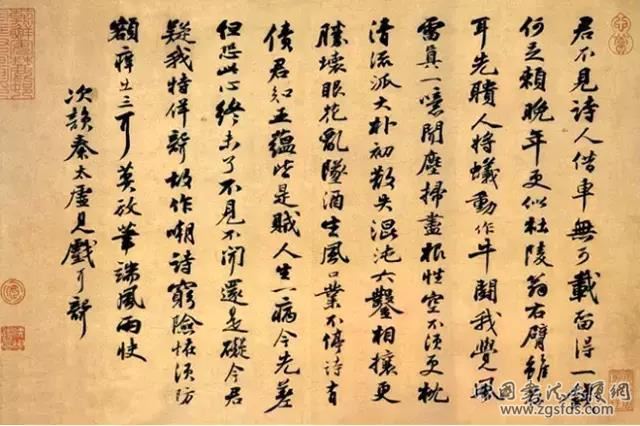 君不見詩人借車無可載留得一錢
何足賴晚年更似杜陵翁右臂雖存
耳先聵人將蟻動作牛鬭我覺風
雷真一噫聞塵掃盡根性空不須更枕
清流派大朴初散失混沌六鑿相攘更
勝壞眼花亂墜酒生風口業不停詩有
債君知五蘊皆是賊人生一病今先差
但恐此心終未了不見不聞還是礙今君
疑我特佯聾故作嘲詩窮險怪須防
額痒出三耳莫放筆端風雨快
次韻秦太虛見戲耳聾
www.zgsfds.com